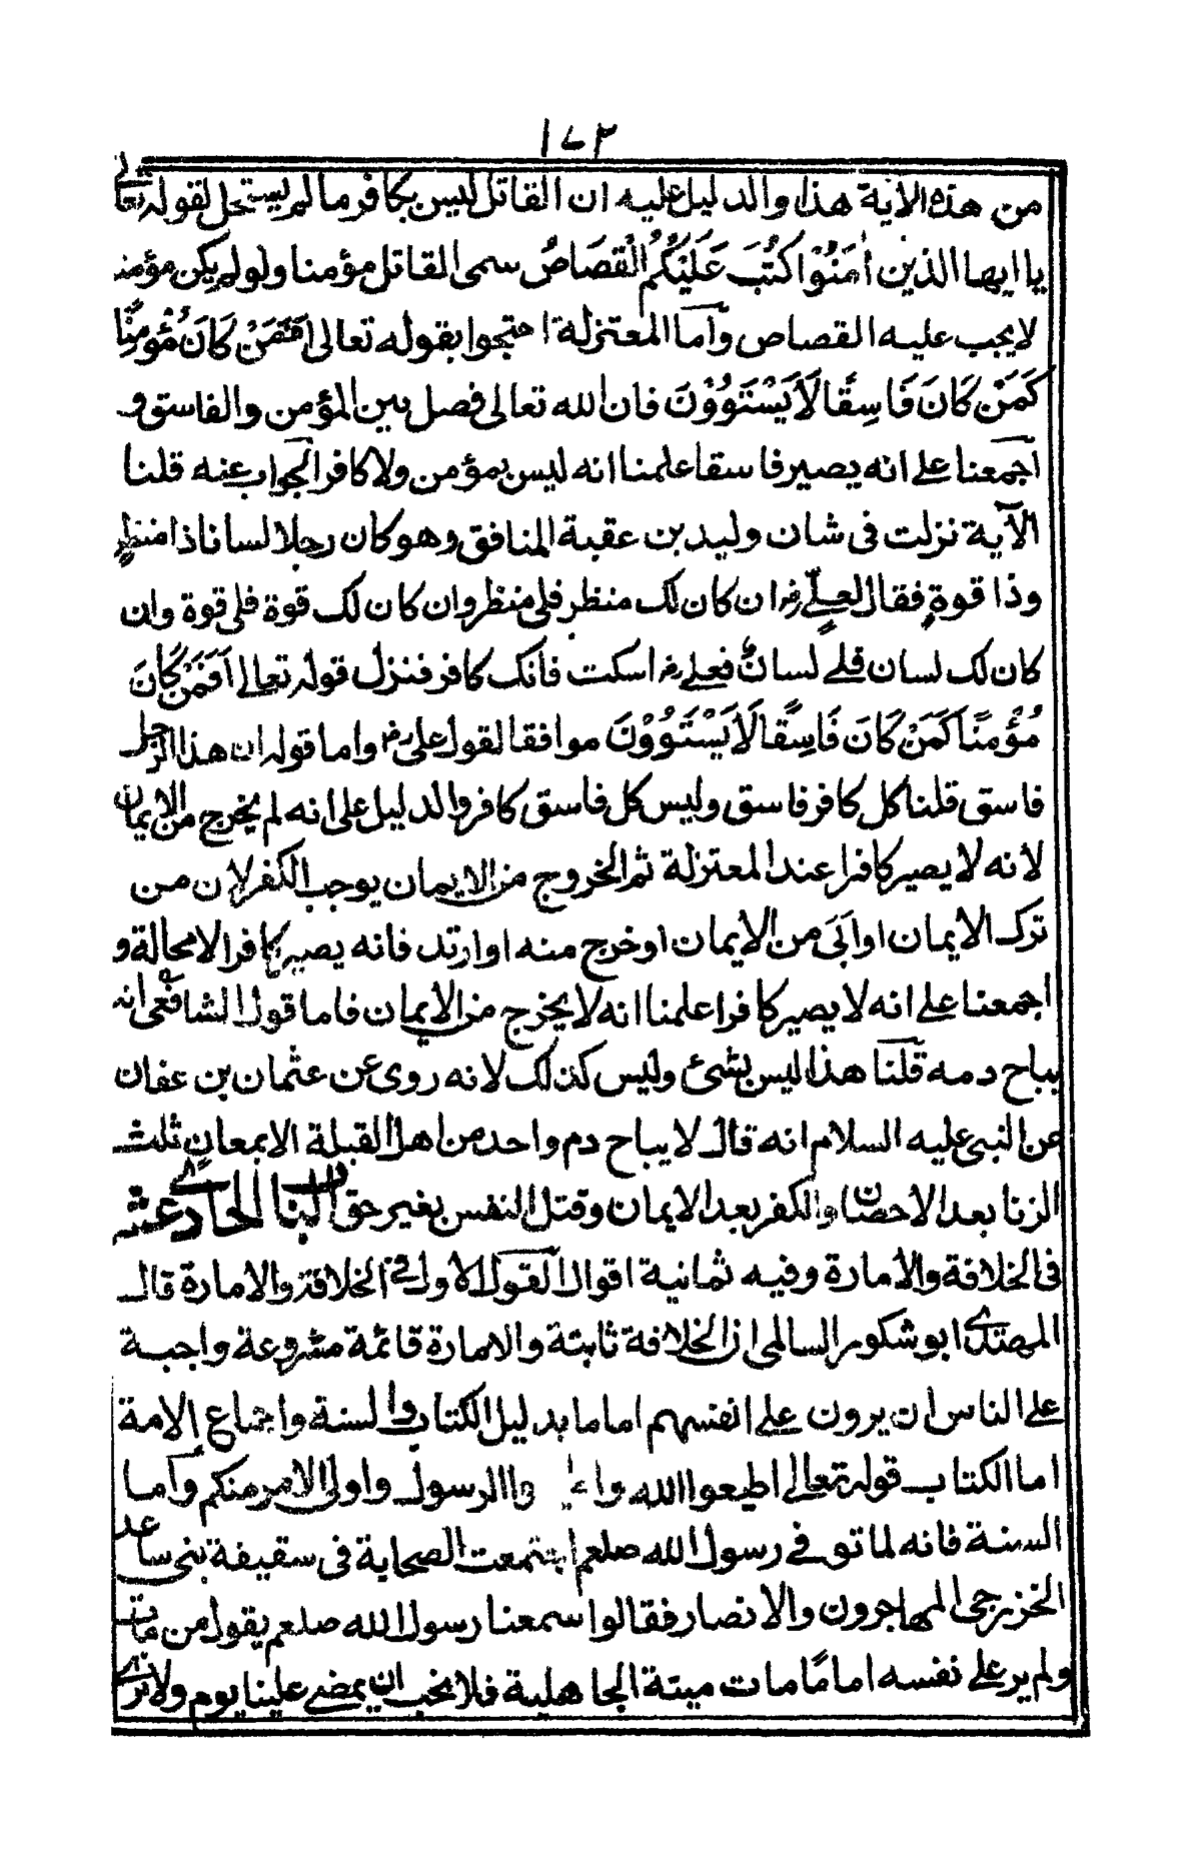 ١٧٣
من هذه الآية هذا والدليل عليه ان القاتل ليس بكافر ما لم يستحل لقوله تعالى
يا ايها الذين اٰمَنُوْا كُتُبَ عَلَيْكُمُ الْقَصَاصُ سمى القاتل مؤمنا ولو لم يكن مؤمنا
لا يجب عليه القصاص وآما المعتزلة احتجوا بقوله تعالى اَفَمَنْ كَانَ مُؤْمِنًا
كَمَنْ كَانَ فَاسِقًا لَا يَسْتَوُوْنَ فان الله تعالى فصل بين المؤمن والفاسق و
اجمعنا على انه يصير فاسقا علمنا انه ليس بمؤمن ولا كافر الجواب عنه قلنا
الآية نزلت فى شان وليد بن عقبة المنافق وهو كان رجلا لسانا ذا منظر
وذا قوة فقال لعلى رض ان كان لك منظر فلى منظر وان كان لك قوة فلى قوة وان
كان لك لسان فلے لسان فعلى رض اسكت فانك كافر فنزل قوله تعالى اَفَمَنْ كَانَ
مُؤْمِنًا كَمَنْ كَانَ فَاسِقًا لَا يَسْتَوُوْنَ موافقا لقول على رض واما قوله ان هذا الرجل
فاسق قلنا كل كافر فاسق وليس كل فاسق كافر والدليل على انه لم يخرج من الايمان
لانه لا يصير كافرا عند المعتزلة ثم الخروج من الايمان يوجب الكفر لان من
ترك الايمان او ابَى من الايمان او خرج منه او ارتد فانه يصير كافرا لا محالة و
اجمعنا على انه لا يصير كافرا علمنا انه لا يخرج من الايمان فاما قول الشافعى انه
يباح دمه قلنا هذا ليس بشئ وليس كذلك لانه روى عن عثمان بن عفان
عن النبى عليه السلام انه قال لا يباح دم واحد من اهل القبلة الا بمعان ثلث
الزنا بعد الاحصان والكفر بعد الايمان وقتل النفس بغير حق الباب الحادى عشر
فى الخلافة والامارة وفيه ثمانية اقوال القول الاول فى الخلافة والامارة قال
المهتدى ابو شكور السالمى ان الخلافة ثابتة والامارة قائمة مشروعة واجبة
على الناس ان يرون على انفسهم اماما بدليل الكتاب والسنة واجماع الامة
اما الكتاب قوله تعالى اطيعوا الله وا والرسول واولى الامر منكم وآما
السنة فانه لما توفى رسول الله صلعم اجتمعت الصحابة فى سقيفة بنى ساعد
الخزرجى المهاجرون والانصار فقالوا سمعنا رسول الله صلعم يقول من مات
ولم ير على نفسه اماما مات ميتة الجاهلية فلا نحب ان يمضى علينا يوم ولا نرى